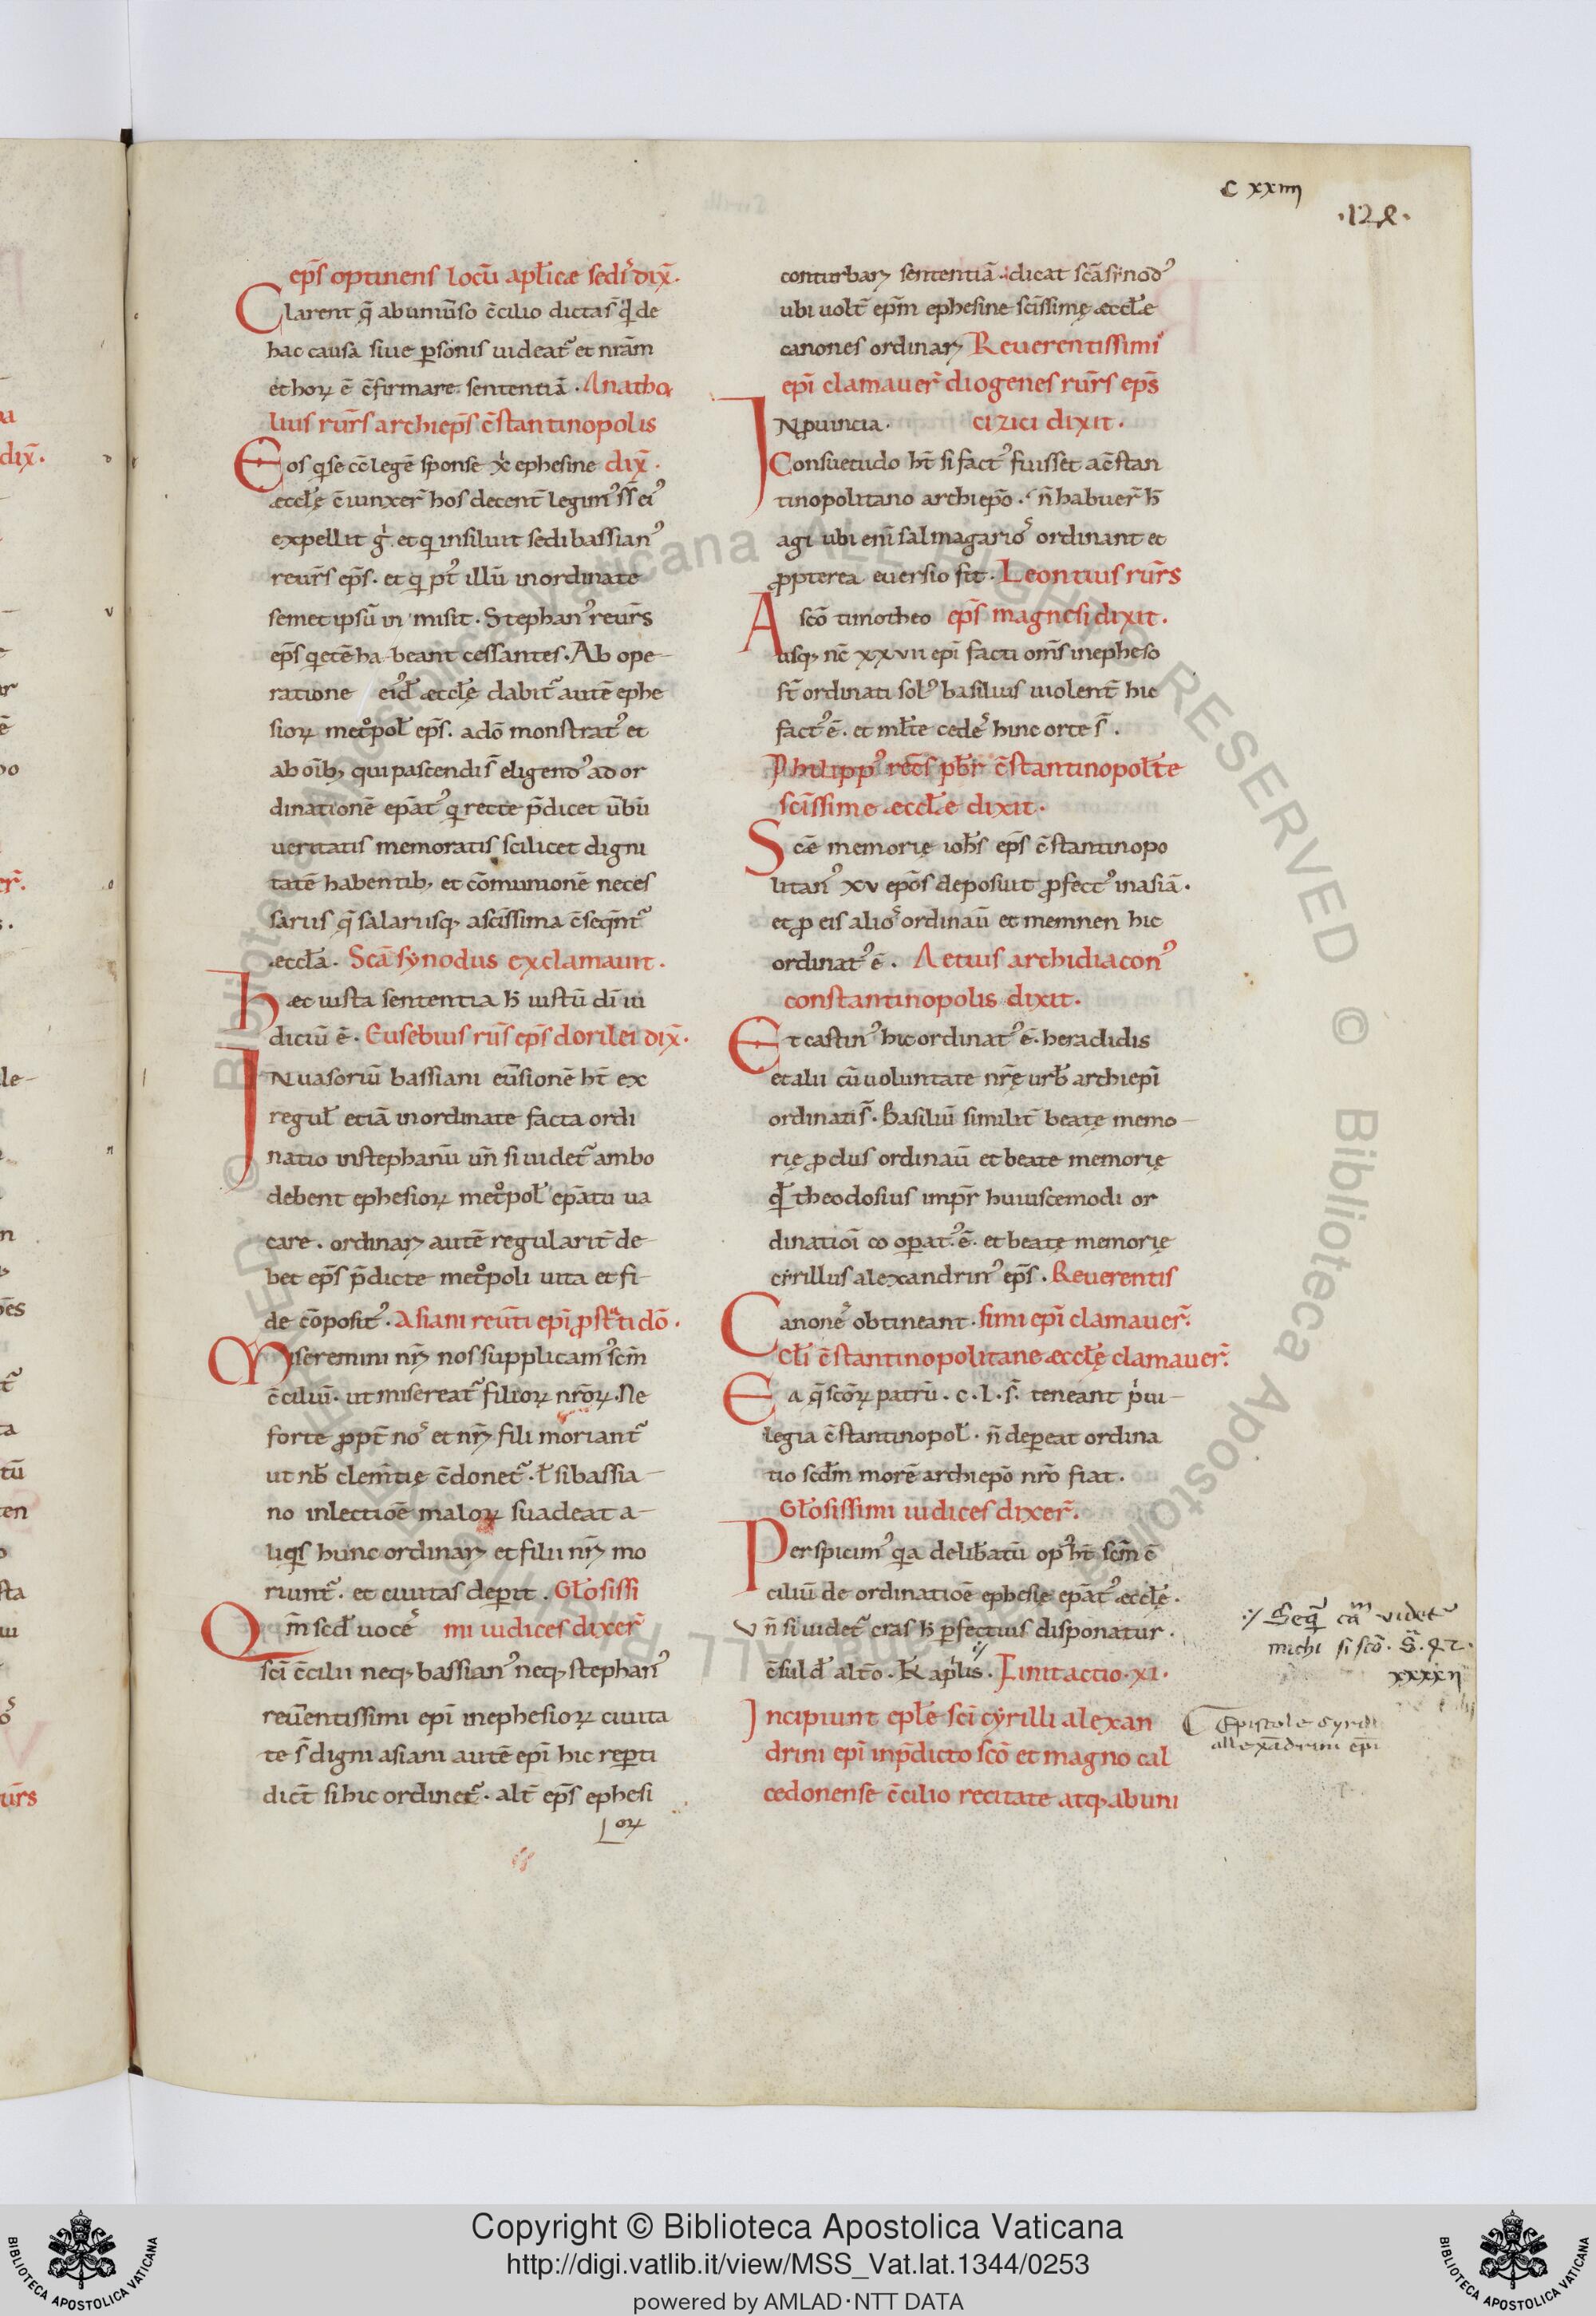 c xxiiii
·124·
ep̄s optinens locū apl̄icæ sediˢ dix̄.
Clarent q̄ ab um̄uso c̄cilio dictas̄ q̄ de
hac causa siue ꝑsonis uideat᷑ et nr̄am
et hoꝝ ē c̄firmare sententiā. Anatho
lius rūrs archiep̄s c̄stantinopolis
Eos qͥ se cōlegē sponse xp̄ ephesine dix̄.
æccl̄ę c̄iunxer̄ hos decent̄ legim᷒ ss̄ ei᷒
expellit g̊ et qͥ insiluit sedi bassian᷒
reūrs ep̄s. et qͥ pꝰt illū inordinate
semet ipsū in misit. Stephan᷒ reūrs
ep̄s qͥetē habeant cessantes. Ab ope-
ratione eid̄ æccl̄ę dabit᷑ autē ephe
sioꝝ metͦpol̄ ep̄s. adō monstrat᷒ et
ab oīb; qui pascendi s̄ eligend᷒ ad or
dinationē ep̄at᷒ qͥ recte p̄dicet ūbū
ueritatis memoratis scilicet digni
tatē habentib; et cōmunionē neces
sariis q̄ salariisq; a sc̄issima c̄seqn̄t᷑
æccl̄a. Scā synodus exclamauit.
hæc iusta sententia h̄ iustū dī iu
diciū ē. Eusebius rūs ep̄s dorilei dix̄.
INuasoriū bassiani eūsionē ht̄ ex
regul̄ etiā inordinate facta ordi
natio instephanū un̄ si uidet᷑ ambo
debent ephesioꝝ metͦpol̄ ep̄atū ua
care. ordinarꝫ autē regularit̄ de-
bet ep̄s p̄dicte metͦpoli uita et fi-
de cōposit᷒. Asiani reūti epī ꝓstͣti dō.
Miseremini nrꝫ nos supplicam᷒ sc̄m
c̄ciliū. ut misereat᷑ filioꝝ nr̄oꝝ. Ne
forte ꝓpt̄ noˢ et nrꝫ fili moriant᷑
ut nb̄ clem̄tię c̄donet᷑. ł si bassia-
no inlectioē maloꝝ suadeat a-
liqͥs hunc ordinarꝫ et filii nrꝫ mo
riunt᷑. et ciuitas deꝑit. Gl̄osissi
Qm̄ scd̄ uoceˢ mi iudices dixer̄
sc̄i c̄cilii neq; bassian᷒ neq; stephan᷒
reūentissimi epī inephesioꝝ ciuita
te s̄ digni asiani autē epī hic reꝑti
dict̄ si hic ordinet᷑. alt̄ ep̄s ephesi
oꝝ
conturbarꝫ sententiā. dicat scā sinod᷒
ubi uolt̄ ep̄m ephesine sc̄issimę æccl̄e
canones ordinarꝫ Reuerentissimi
epī clamauer̄ diogenes rūrs ep̄s
INꝓuincia. cizici dixit.
Consuetudo ht̄ si fact᷒ fuisset a c̄stan
tinopolitano archiep̄o. n̄ habuer̄ h̄
agi ubi enī salmagarioˢ ordinant et
ꝓpterea euersio fit. Leontius rūrs
A sc̄o timotheo ep̄s magnesi dixit.
usq; nc̄ xxvii epī facti om̄s inepheso
st̄ ordinati sol᷒ basilius uiolent̄ hic
fact᷒ ē. et ml̄te cedeˢ hinc orte s̄.
Philipp᷒ recc̄s pb̄r c̄stantinopolt̄e
sc̄issime æccl̄e dixit.
Scē memorię ioh̄s ep̄s c̄stantinopo
litan᷒ xv ep̄os deposuit ꝓfect᷒ inasiā.
et ꝓ eis alioˢ ordinaū et memnen hic
ordinat᷒ ē. Aetius archidiacon᷒
constantinopolis dixit.
Et castin᷒ hic ordinat᷒ ē. heraclidis
et alii cū uoluntate nr̄ę urb̄ archiepī
ordinati s̄. Basiliū similit̄ beatę memo-
rię ꝓclus ordinaū et beate memorię
qd̄ theodosius impr̄ huiuscemodi or
dinatioī co oꝑat᷒ ē. et beatę memorię
cẏrillus alexandrin᷒ ep̄s. Reuerentis
Canoneˢ obtineant. simi epī clamauer̄.
Cl̄i c̄stantinopolitane æccl̄ę clamauer̄.
Ea q̄ sc̄oꝝ patrū. c. l. s̄. teneant pͥui-
legia c̄stantinopol̄. n̄ deꝑeat ordina
tio scd̄m morē archiep̄o nr̄o fiat.
Gl̄osissimi iudices dixer̄.
Perspicim᷒ qͥa delib̄atū op᷒ ht̄ sc̄m c̄
ciliū de ordinatioē ephesię ep̄at᷒ æccl̄ę.
vn̄ si uidet᷑ cras h̄ ꝑfectius disponatur.
c̄suld̄ alt̄o. kł apͥlis. Finit actio. xi.
Incipiunt epl̄e sc̄i cẏrilli alexan
drini epī inp̄dicto sc̄o et magno cal
cedonense c̄cilio recitate atq; abuni
Seq̄ cām videt᷑
michi si sc̄o. S̄. 42.
xxxxii
Epistole Cyrilli
allexādrini epī
Copyright © Biblioteca Apostolica Vaticana
http://digi.vatlib.it/view/MSS_Vat.lat.1344/0253
powered by AMLAD·NTT DATA